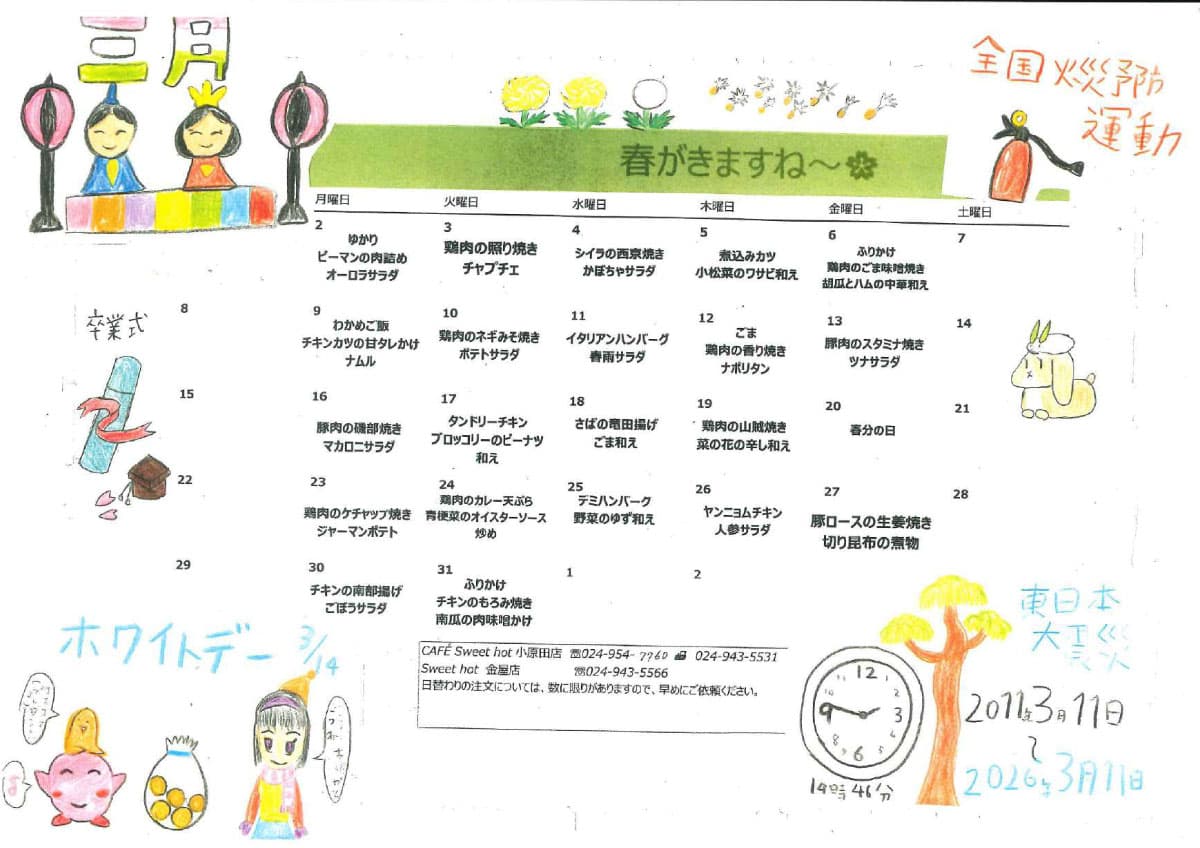 三月
全国災予防
運動
春がきますね～
月曜日 火曜日 水曜日 木曜日 金曜日 土曜日
2
ゆかり
ピーマンの肉詰め
オーロラサラダ
3
鶏肉の照り焼き
チャプチェ
4
シイラの西京焼き
かぼちゃサラダ
5
煮込みカツ
小松菜のワサビ和え
6
ふりかけ
鶏肉のごま味噌焼き
胡瓜とハムの中華和え
7
卒業式
8
9
わかめご飯
チキンカツの甘タレかけ
ナムル
10
鶏肉のネギみそ焼き
ポテトサラダ
11
イタリアンハンバーグ
春雨サラダ
12
ごま
鶏肉の香り焼き
ナポリタン
13
豚肉のスタミナ焼き
ツナサラダ
14
15
16
豚肉の磯部焼き
マカロニサラダ
17
タンドリーチキン
ブロッコリーのピーナツ
和え
18
さばの竜田揚げ
ごま和え
19
鶏肉の山賊焼き
菜の花の辛し和え
20
春分の日
21
22
23
鶏肉のケチャップ焼き
ジャーマンポテト
24
鶏肉のカレー天ぷら
青梗菜のオイスターソース
炒め
25
デミハンバーグ
野菜のゆず和え
26
ヤンニョムチキン
人参サラダ
27
豚ロースの生姜焼き
切り昆布の煮物
28
29
30
チキンの南部揚げ
ごぼうサラダ
31
ふりかけ
チキンのもろみ焼き
南瓜の肉味噌かけ
1
2
ホワイトデー 3/14
CAFÉ Sweet hot 小原田店 ☏024-954-7760 024-943-5531
Sweet hot 金屋店 ☏024-943-5566
日替わりの注文については、数に限りがありますので、早めにご依頼ください。
東日本
大震災
2011年3月11日
～
2026年3月11日
12
3
6
9
14時46分